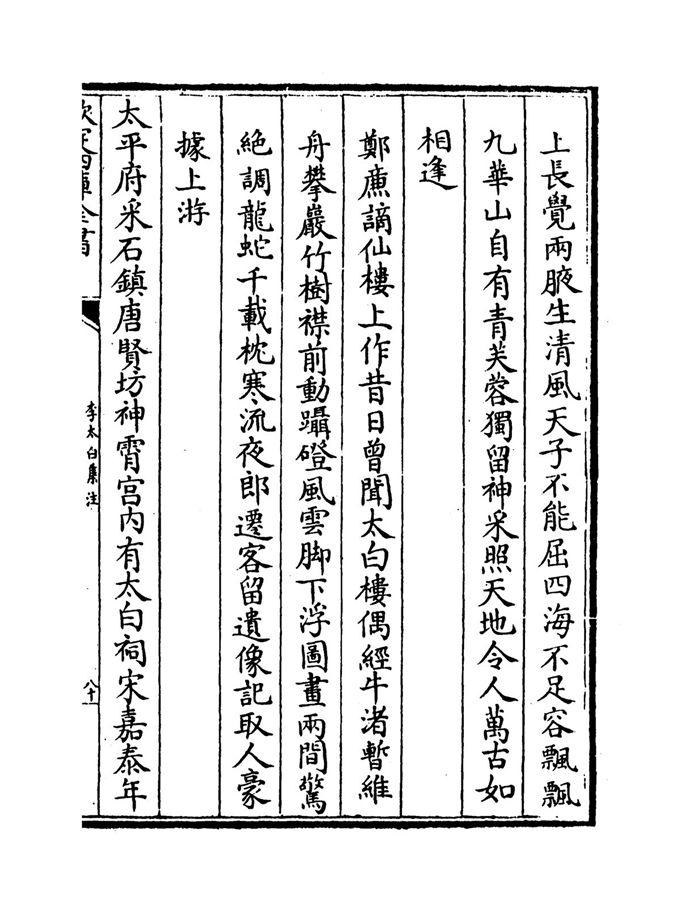 上長覺兩腋生清風天子不能屈四海不足容飄飄
九華山自有青芙蓉獨留神采照天地令人萬古如
相逢
鄭㢘謫仙樓上作昔日曾聞太白樓偶經牛渚暫維
舟攀巖竹樹襟前動躡磴風雲脚下浮圖畫兩間驚
絶調龍蛇千載枕寒流夜郎遷客留遺像記取人豪
據上游
太平府采石鎮唐賢坊神霄宫内有太白祠宋嘉泰年
欽定四庫全書
李太白集注
八十